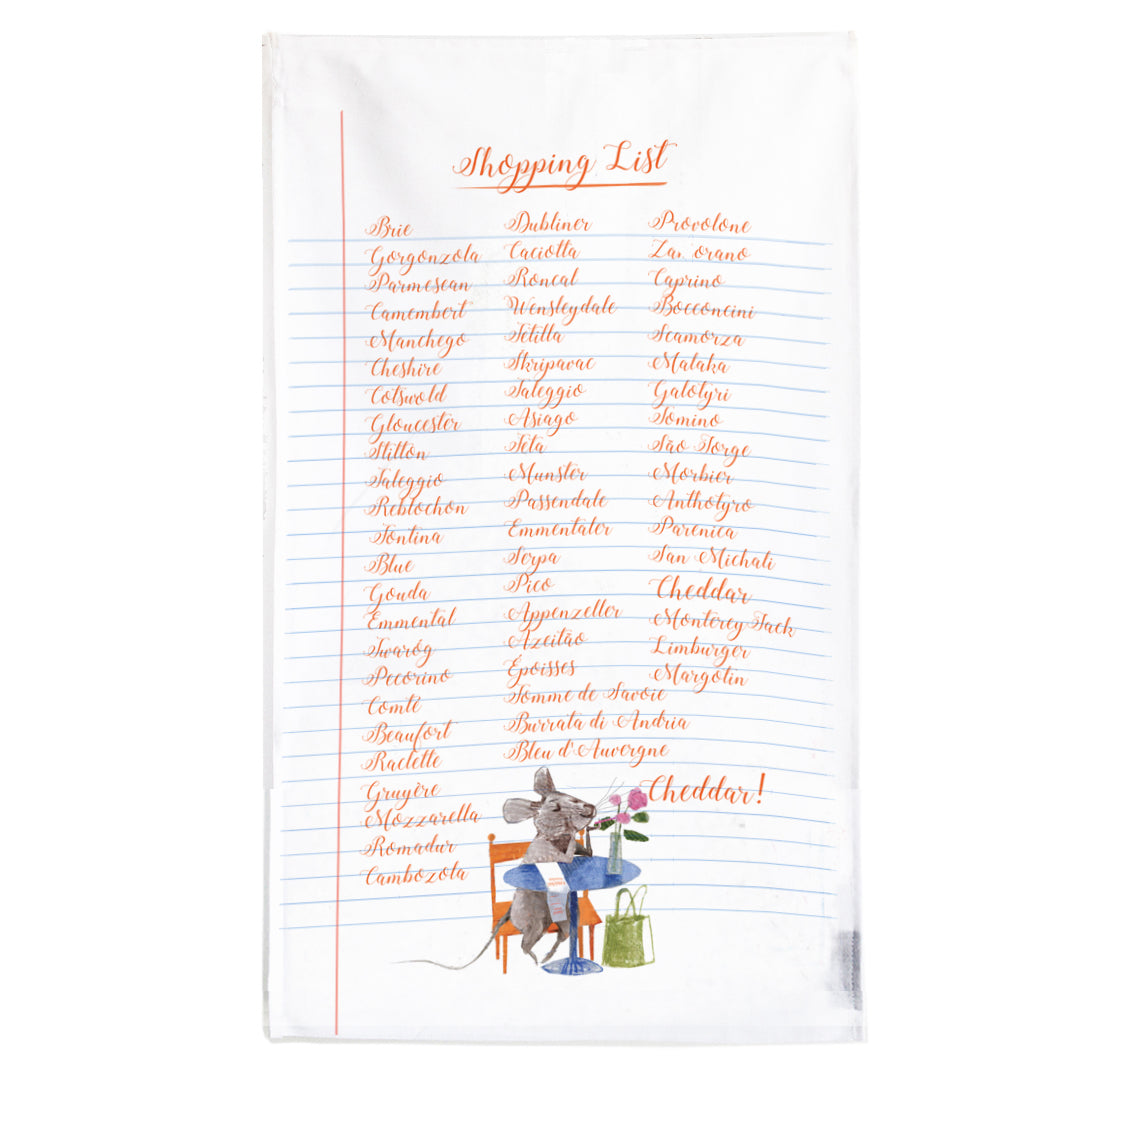 Shopping List
Brie
Gorgonzola
Parmesean
Camembert
Manchego
Cheshire
Cotswold
Gloucester
Stilton
Taleggio
Reblochon
Fontina
Blue
Gouda
Emmental
Twaróg
Pecorino
Comté
Beaufort
Raclette
Gruyère
Mozzarella
Romadur
Cambozola
Dubliner
Caciotta
Roncal
Wensleydale
Tetilla
Škripavac
Taleggio
Asiago
Feta
Munster
Passendale
Emmentaler
Serpa
Pico
Appenzeller
Azeitão
Époisses
Tomme de Savoie
Burrata di Andria
Bleu d'Auvergne
Provolone
Caprino
Bocconcini
Scamorza
Malaka
Galotyri
Tomino
São Jorge
Morbier
Anthotyro
Parenica
San Michali
Cheddar
Monterey Jack
Limburger
Margotin
Cheddar!